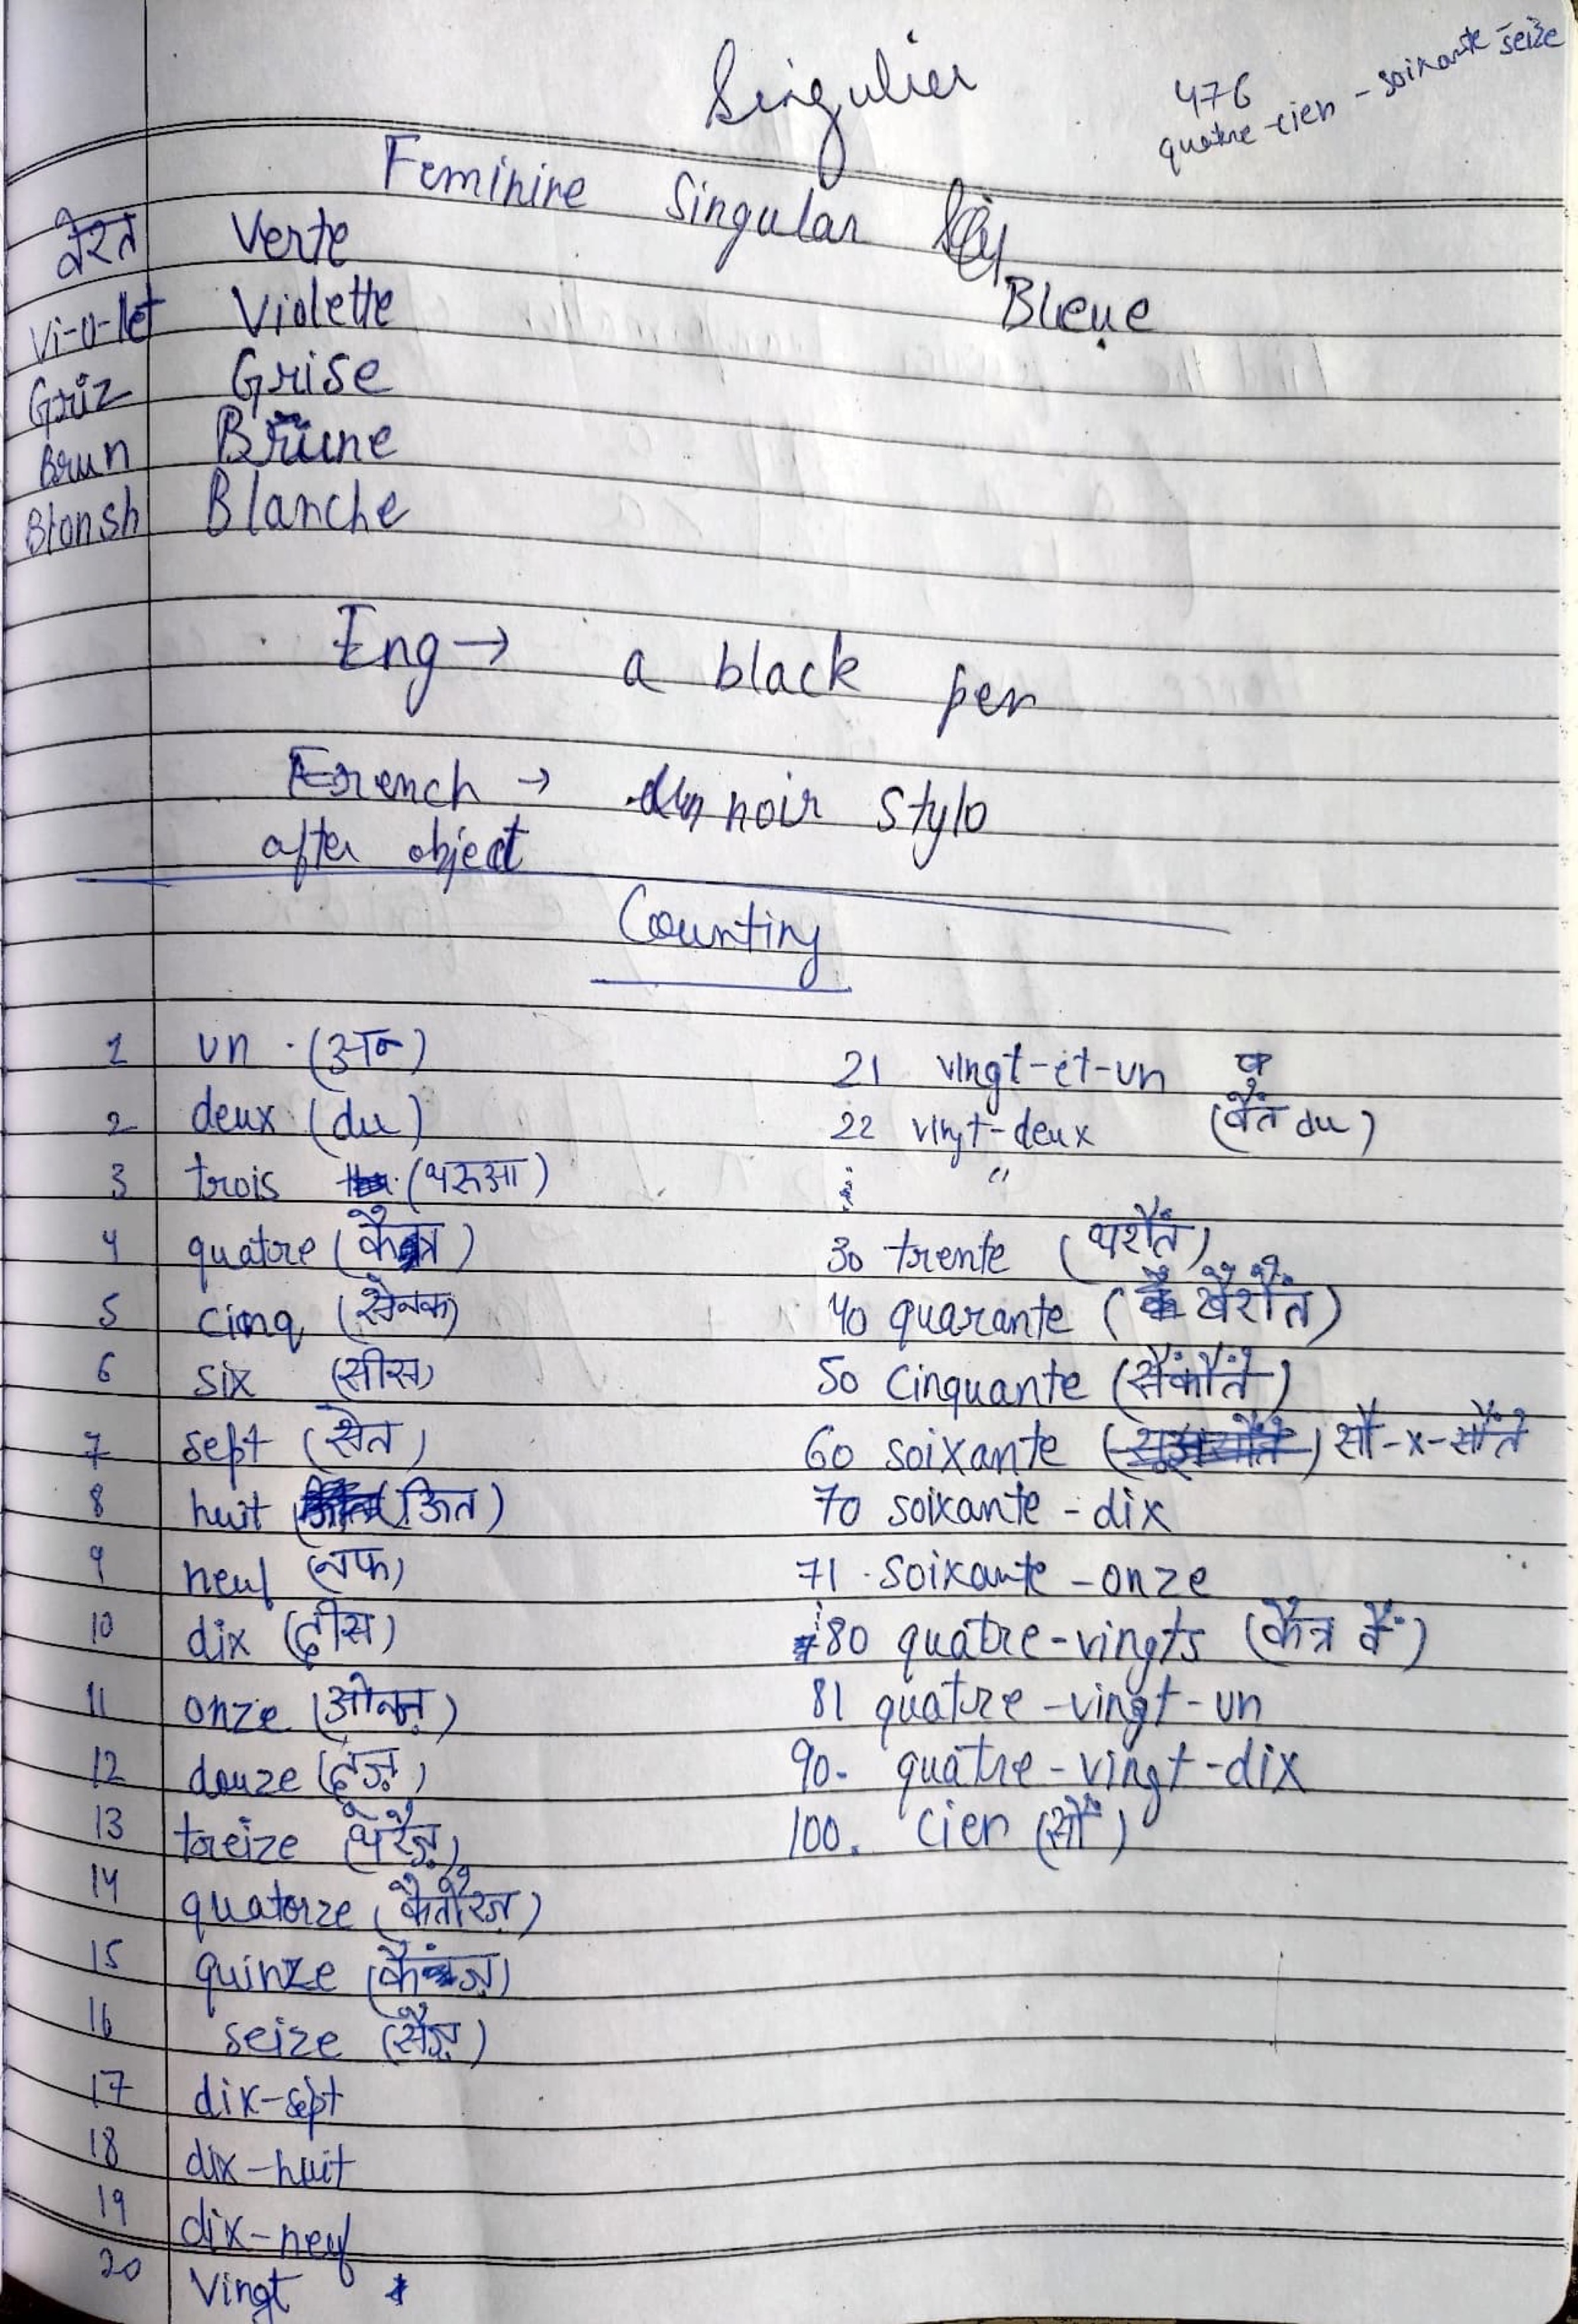 Singulier
476
quatre-cien-soixante-seize
Feminine Singular
वेरत Verte
Bleue
Vi-o-let Violette
Griz Grise
Brun Brune
Blonsh Blanche
Eng → a black pen
French → un noir Stylo
after object
Counting
1 un (अन)
2 deux (du)
3 trois (थरुआ)
4 quatre (कैत्र)
5 cinq (सेनक)
6 six (सीस)
7 sept (सेत)
8 huit (ऊित)
9 neuf (नफ)
10 dix (दीस)
11 onze (ओनज़)
12 douze (दूज़)
13 treize (थरैज़)
14 quatorze (कैतौरज़)
15 quinze (कैंज़)
16 seize (सैज़)
17 dix-sept
18 dix-huit
19 dix-neuf
20 Vingt
21 vingt-et-un
22 vingt-deux (वैंत du)
"
30 trente (थरौंत)
40 quarante (खैरौंत)
50 Cinquante (सैंकौंत)
60 soixante सौ-x-सौंत
70 soixante-dix
71 soixante-onze
80 quatre-vingts (कैत्र वैं)
81 quatre-vingt-un
90. quatre-vingt-dix
100. cien (सौं)